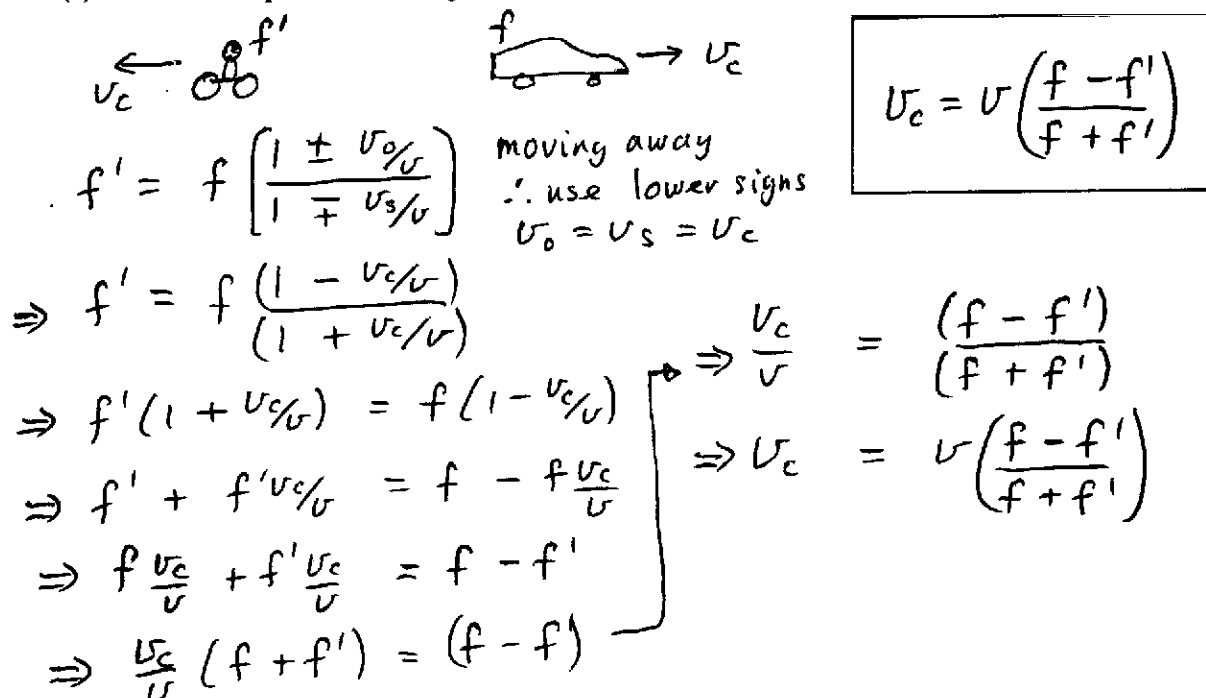 f'
f
v_c ←
→ v_c
v_c = v((f - f')/(f + f'))
f' = f[(1 ± v_o/v)/(1 ∓ v_s/v)]
moving away
∴ use lower signs
v_o = v_s = v_c
⇒ f' = f (1 - v_c/v)/(1 + v_c/v)
⇒ f'(1 + v_c/v) = f(1 - v_c/v)
⇒ f' + f'v_c/v = f - f v_c/v
⇒ f v_c/v + f' v_c/v = f - f'
⇒ v_c/v (f + f') = (f - f')
⇒ v_c/v = (f - f')/(f + f')
⇒ v_c = v((f - f')/(f + f'))